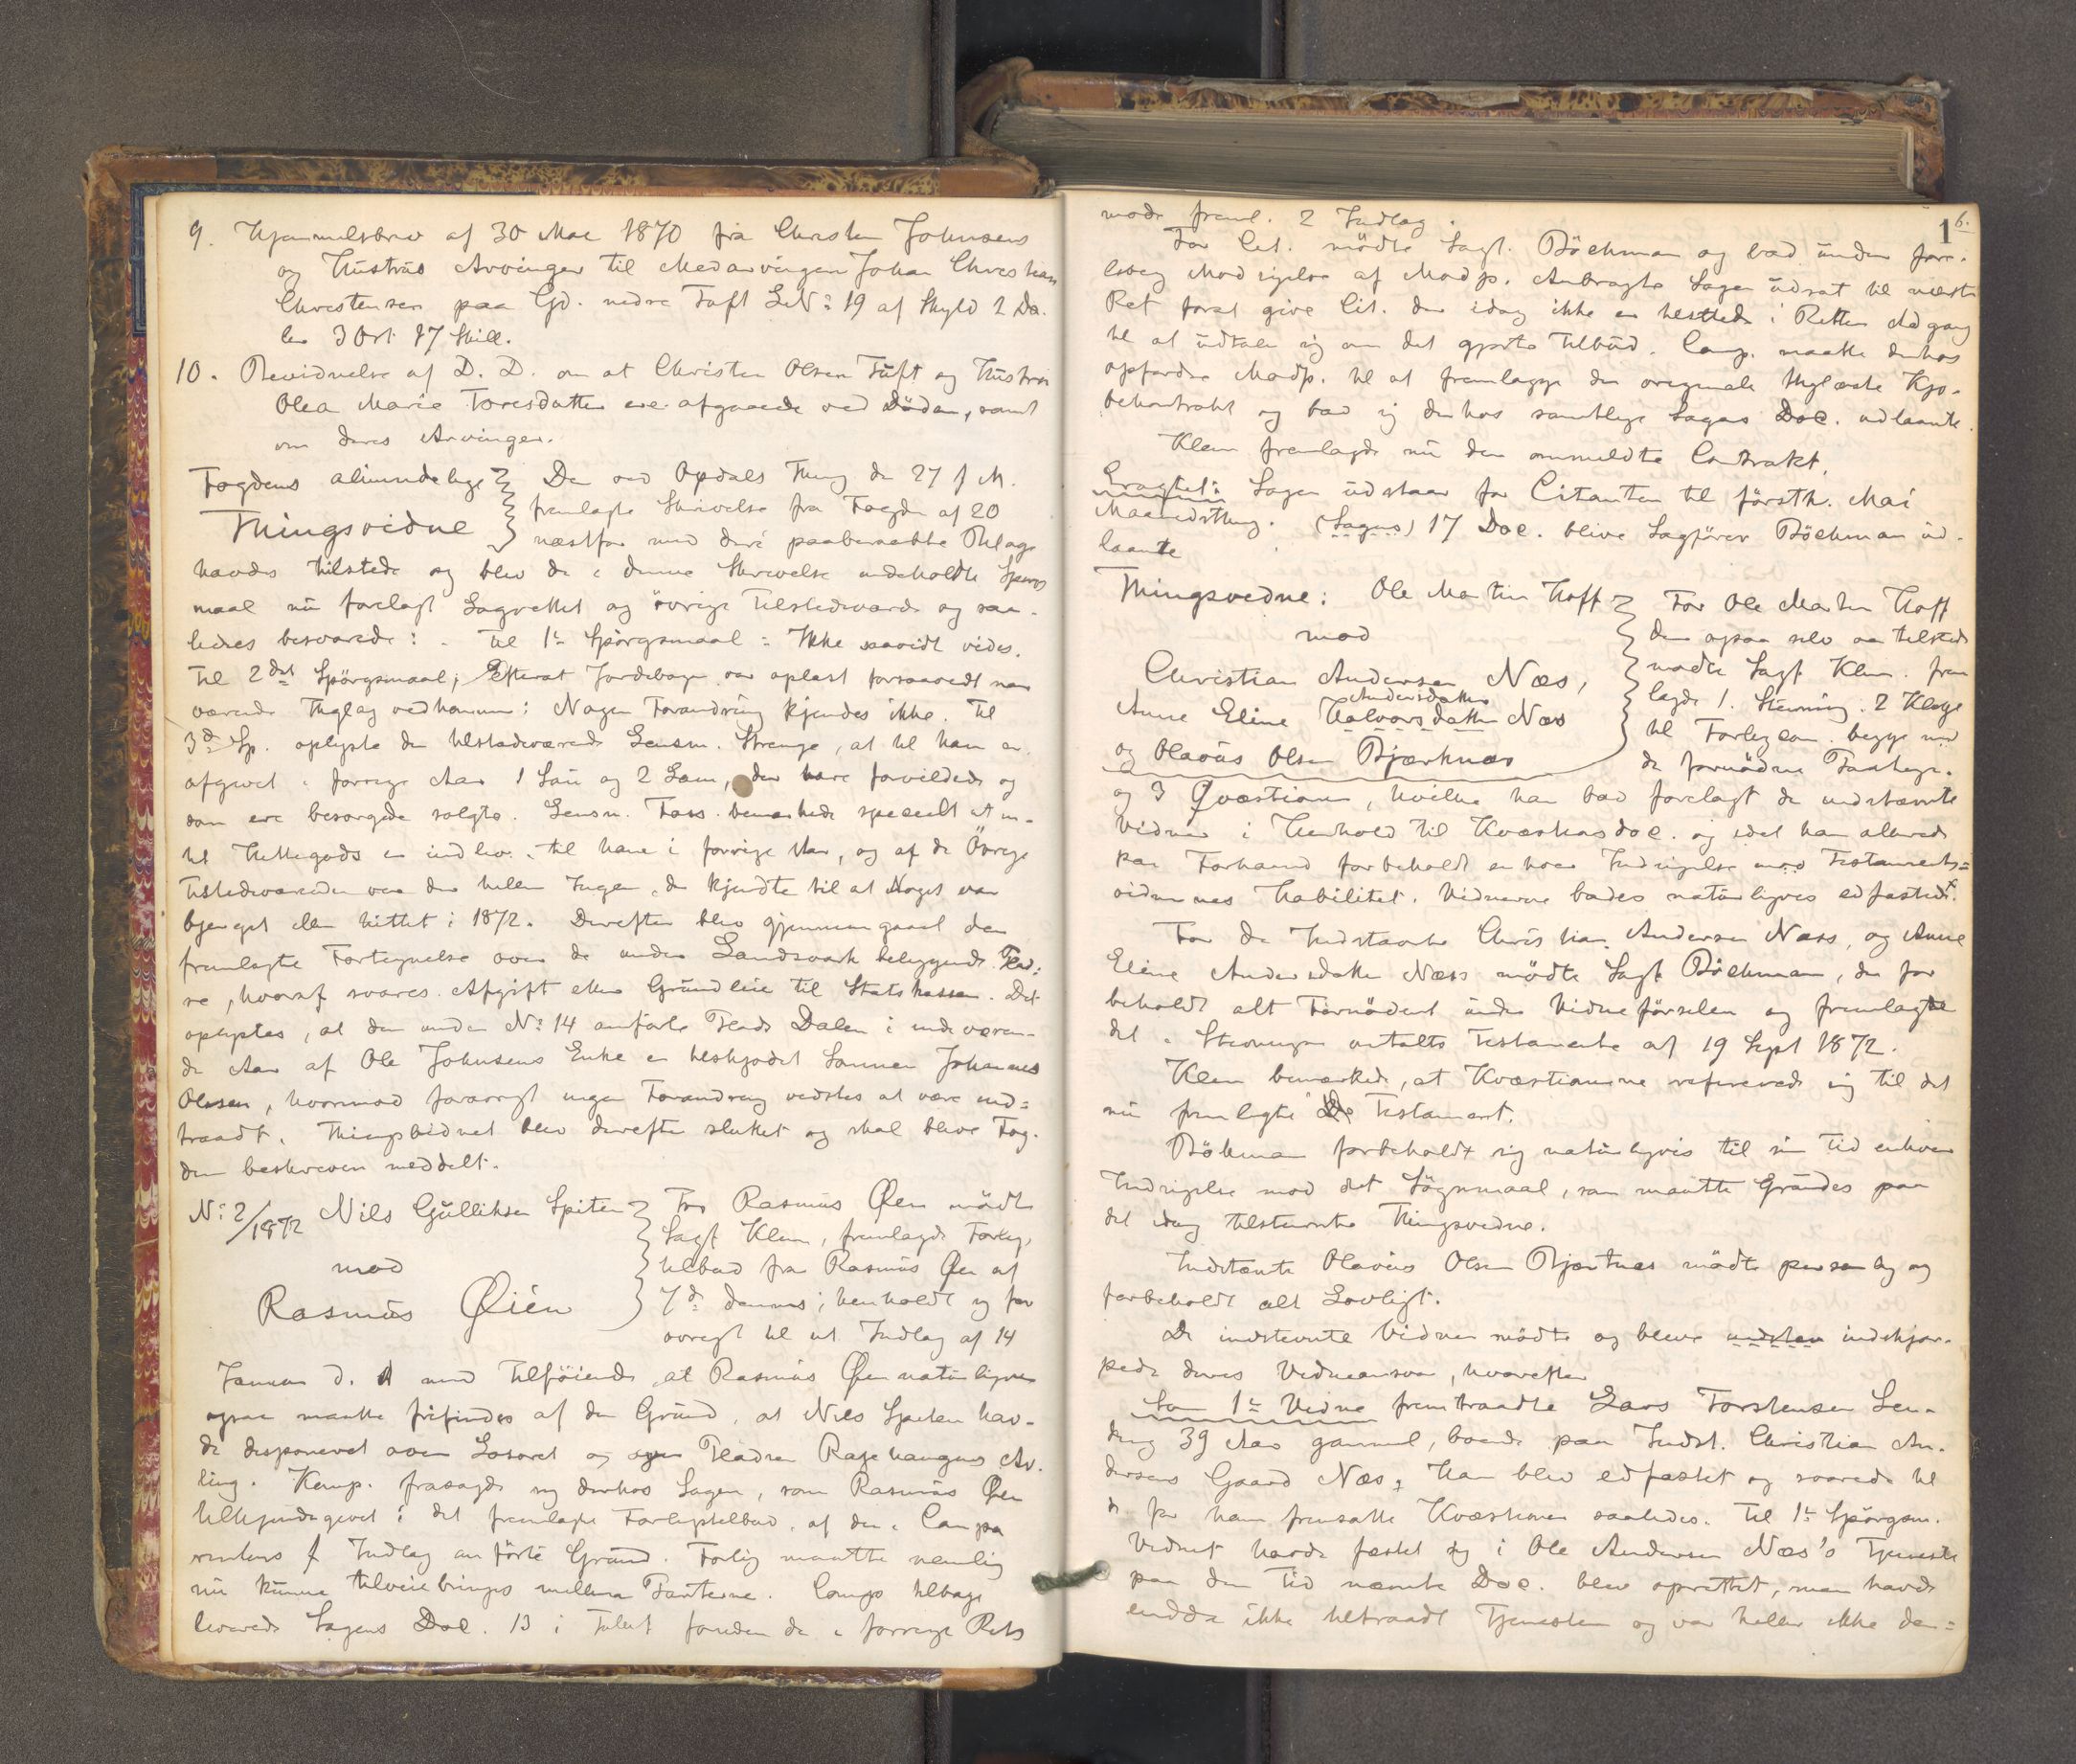 9. Hjemmelsbrev af 30 Mai 1870 fra Christen Johnsens
og Hustrus Arvinger til Medarvingen Johan Christian
Christensen paa Gd. nedre Tuft LN: 19 af Skyld 2 Da-
ler 3 Ort 17 Skill.
10. Bevidnelse af D. D. om at Christen Olsen Tuft og Hustru
Olea Marie Toresdatter ere afgaaede ved Döden, samt
om deres Arvinger.
Fogdens almindelige
Thingsvidne
Den ved Opdals Thing de 27 f M.
fremlagte Skrivelse fra Fogden af 20
næstfør med deri paaberaabte Bilage
havdes tilstede og blev de i denne Skrivelse indeholdte Spörgs
maal nu forelagt Lagrettet og övrige Tilstedeværende og saa-
ledes besvarede: - Til 1te Spörgsmaal: Ikke saavidt vides.
Til 2det Spörgsmaal; Efterat Jordebogen var oplæst forsaavidt nær
værende Thglag vedkommer: Nogen Forandring kjendes ikke. Til
3die Sp. oplyste den tilstedeværende Lensm. Strenge, at til ham er
afgivet i forrige Aar 1 Sau og 2 Lam, der vare forvildede og
som ere besørgede solgte. Lensm. Foss bemærkede specielt at in-
tet Hittegods er indlev. til ham i forrige Aar, og af de Övrige
Tilstedeværende var der heller Ingen, der kjendte til at Noget var
bjerget eller hittet i 1872. Derefter blev gjennemgaaet den
fremlagte Fortegnelse over de under Landsværk beliggende Plad-
se, hvoraf svares Afgift eller Grundleie til Statskassen. Det
oplystes, at den under No: 14 anförte Plads Dalen i indeværen-
de Aar af Ole Johnsens Enke er tilskjödet Sönnen Johannes
Olsen, hvorimod forøvrigt ingen Forandring vidstes at være ind=
traadt. Thingsvidnet blev derefter sluttet og skal blive Fog-
den beskreven meddelt.
No: 2/1872 Nils Gulliksen Spiten
mod
Rasmus Øien
For Rasmus Øien mödte
Sagf Klem, fremlagde Forligs
tilbud fra Rasmus Øien af
7de dennes; henholdt sig for
øvrigt til sit Indlæg af 14
Januar d. A med Tilföiende, at Rasmus Øien naturligvis
ogsaa maatte frifindes af den Grund, at Nils Spiten hav-
de disponeret over Løsøret og over Pladsen Ragehaugens Av-
ling. Komp. frasagde sig derhos Sagen, som Rasmus Øien
tilkjendegivet i det fremlagte Forligstilbud, af den i Compa
rentens f Indlæg anförte Grund. Forlig maatte nemlig
nu kunne tilveiebringes mellem Parterne. Comp tilbage
leverede Sagens Doc. 13 i Tallet foruden de i forrige Rets
6.
1
møde freml. 2 Indlæg.
For Cit. mödte Sagf. Böckman og bad under fore-
løbig Modsigelse af Modp. Anbragte Sagen udsat til næste
Ret forat give Cit. der idag ikke er tilstede i Retten Adgang
til at udtale sig om det gjorte Tilbud. Comp. maatte derhos
opfordre Modp. til at fremlægge den originale thglæste Kjø-
bekontrakt og bad sig derhos samtlige Sagens Doc. udlaante.
Klem fremlagde nu den ommeldte Contrakt.
Eragtet: Sagen udstaar for Citanten til förstk. Mai
Maanedsthing. (Sagens) 17 Doc. blive Sagförer Böckman ud-
laante
Thingsvidne: Ole Martin Hoff
mod
Christian Andersen Næs,
Andersdatter
Anne Eline Halvorsdatter Næs
og Olavus Olsen Bjærknæs
For Ole Martin Hoff
der ogsaa selv var tilstede
mödte Sagf Klem. frem
lagde 1. Stevning. 2 Klage
til Forligscom. begge med
de fornödne Paategn.
og 3 Qvæstioner, hvilke han bad forelagt de indstævnte
Vidner i Henhold til Kvæstionsdoc. og idet han allerede
paa Forhaand forbeholdt enhver Indsigelse mod Testaments=
vidnernes Habilitet. Vidnerne bades naturligvis edfæstede.
For de Indstævnte Christian Andersen Næss, og Anne
Eline Andersdatter Næss mödte Sagf Böckman, der for
beholdt alt Fornödent under Vidneförselen og fremlagde
det i Stevningen omtalte Testamente af 19 Sept 1872.
Klem bemærkede, at Kvæstionerne refererede sig til det
nu fremlagte Testament.
Böckman forbeholdt sig naturligvis til sin Tid enhver
Indsigelse mod det Sögsmaal, som maatte Grundes paa
det idag tilstævnte Thingsvidne.
Indstævnte Olavus Olsen Bjærknes mödte personlig og
forbeholdt alt Lovligt.
De indstevnte Vidner mödte og bleve indskjær-
pede deres Vidneansvar, hvorefter
Som 1te Vidne fremtraadte Lars Torstensen Len-
ding 39 Aar gammel, boende paa Indst. Christian An-
dersens Gaard Næs, Han blev edfæstet og svarede til
de for ham fremsatte Kvæstioner saaledes. Til 1te Spörgsm.
Vidnet havde fæstet sig i Ole Andersen Næs's Tjeneste
paa den Tid nævnte Doc. blev oprettet, men havde
endda ikke tiltraadt Tjenesten og var heller ikke der=